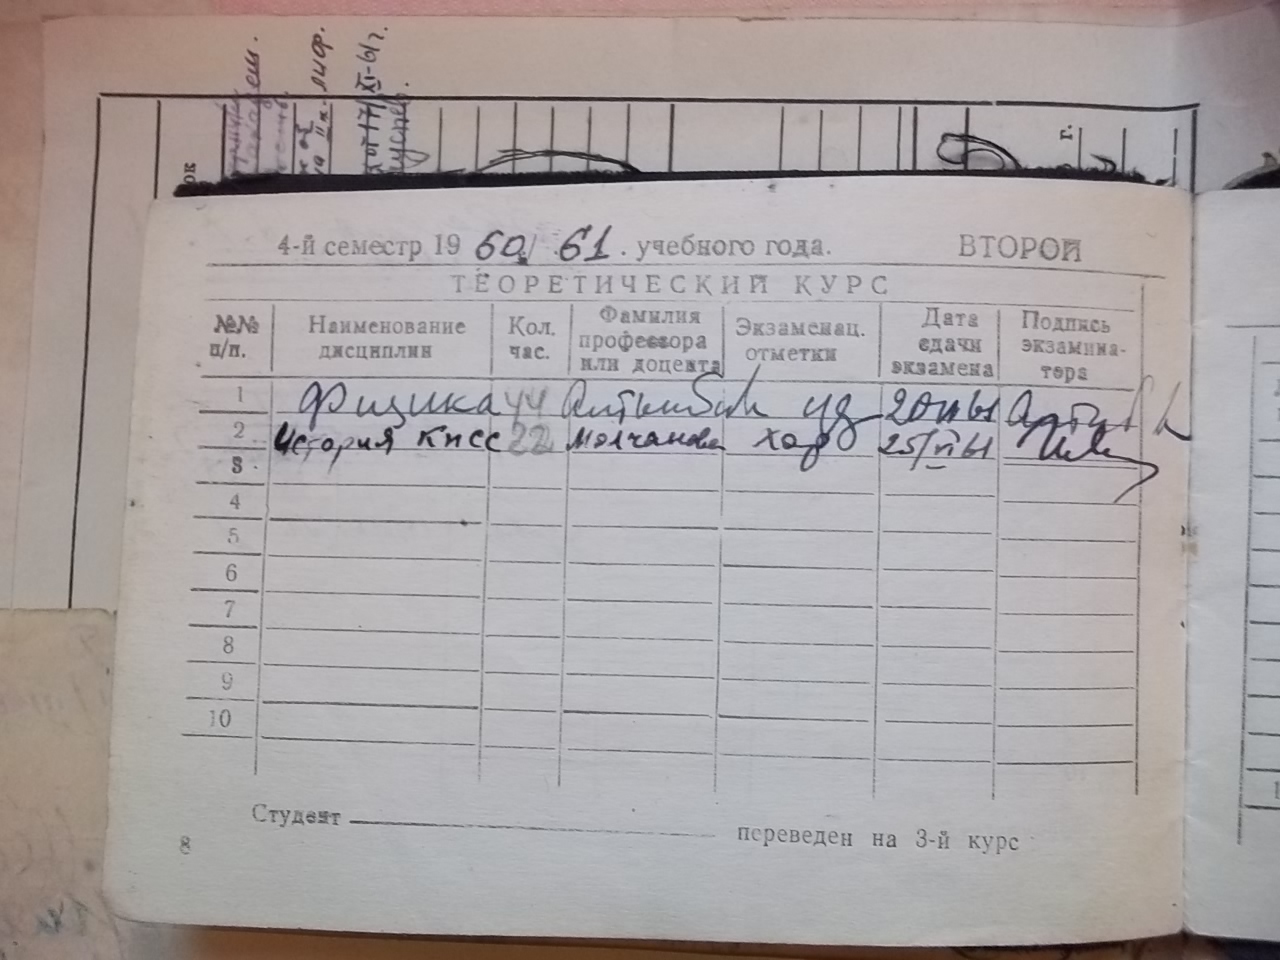 4-й семестр 1960/61. учебного года. ВТОРОЙ
ТЕОРЕТИЧЕСКИЙ КУРС
№№ п/п. Наименование дисциплин Кол. час. Фамилия профессора или доцента Экзаменац. отметки Дата сдачи экзамена Подпись экзаминатора
1 Физика 44 уд 20/VI 61
2 История КПСС 22 Молчанова хор 25/VI 61
3
4
5
6
7
8
9
10
Студент переведен на 3-й курс
8